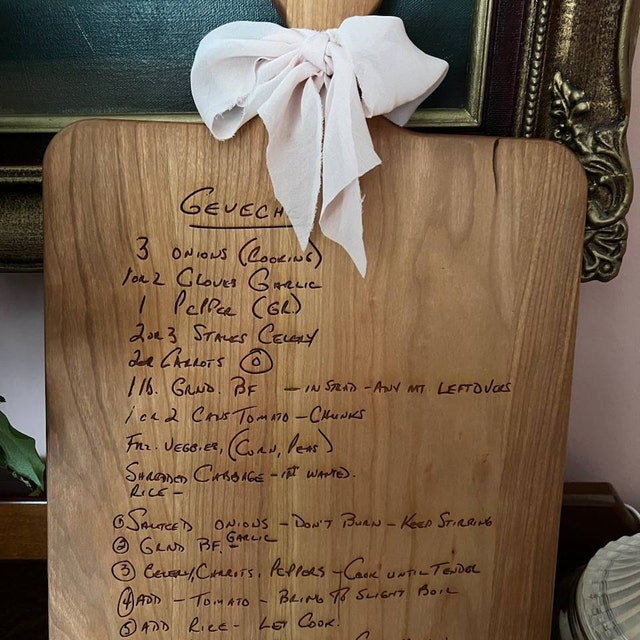 GEVECH
3 ONIONS (COOKING)
1 OR 2 CLOVES GARLIC
1 PEPPER (GR)
2 OR 3 STALKS CELERY
2 OR CARROTS
1 lb. GRND. BF — IN STEAD - ANY MT LEFTOVERS
1 OR 2 CANS TOMATO - CHUNKS
FRZ. VEGGIES, (CORN, PEAS)
SHREDDED CABBAGE - IF WANTED.
RICE -
① SAUTEED ONIONS - DON'T BURN - KEEP STIRRING
② GRND BF. - GARLIC
③ CELERY, CARROTS, PEPPERS - COOK UNTIL TENDER
④ ADD - TOMATO - BRING TO SLIGHT BOIL
⑤ ADD RICE - LET COOK.